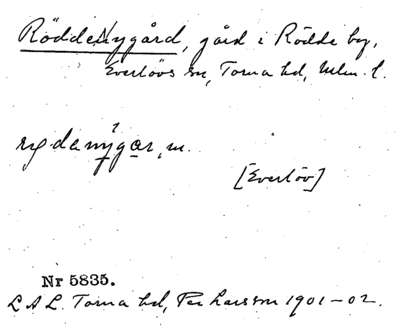 Rödde Nygård, gård i Rödde by,
Everlövs sn, Torna hd, Mlm. l.
m.
[Everlöv]
Nr 5835.
L A L. Torna hd, Per Larsson 1901-02.